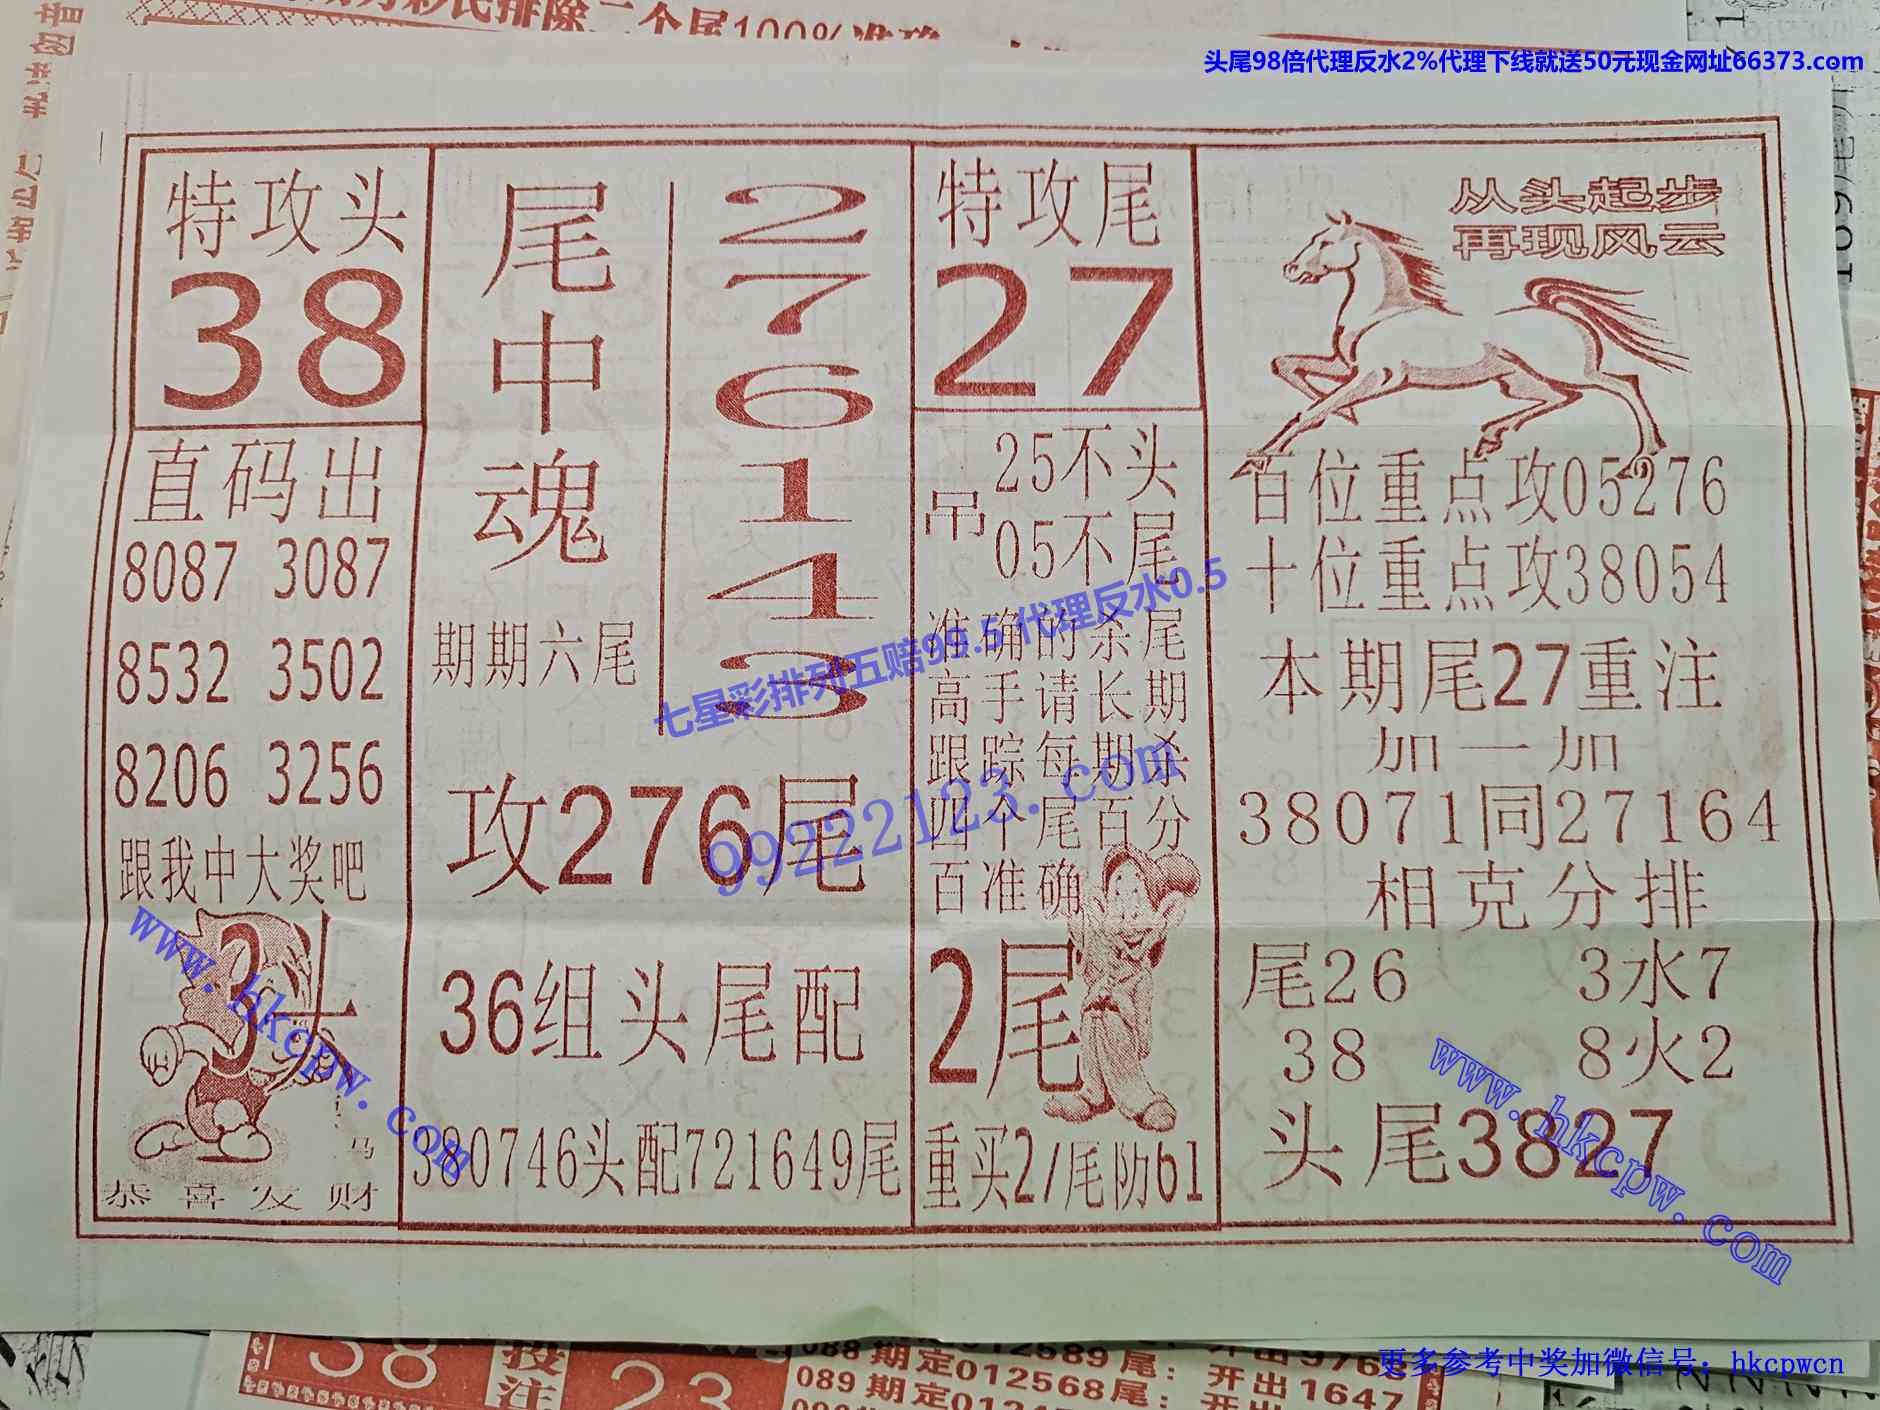 头尾98倍代理反水2%代理下线就送50元现金网址66373.com
特攻头
38
直码出
8087 3087
8532 3502
8206 3256
跟我中大奖吧
3头
马
恭喜发财
尾中魂
期期六尾
2
7
6
1
4
3
攻276尾
36组头尾配
380746头配721649尾
特攻尾
27
吊
25不头
05不尾
准确的杀尾
高手请长期
跟踪每期杀
四个尾百分
百准确
2尾
重买27尾防61
从头起步
再现风云
百位重点攻05276
十位重点攻38054
本期尾27重注
加一加
38071同27164
相克分排
尾26 3水7
38 8火2
头尾3827
七星彩排列五赔99.5代理反水0.5
99222123.com
www.hkcpw.com
www.hkcpw.com
38
投注
23
088期定012589尾：开出976
089期定012568尾：开出1647
更多参考中奖加微信号：hkcpwcn